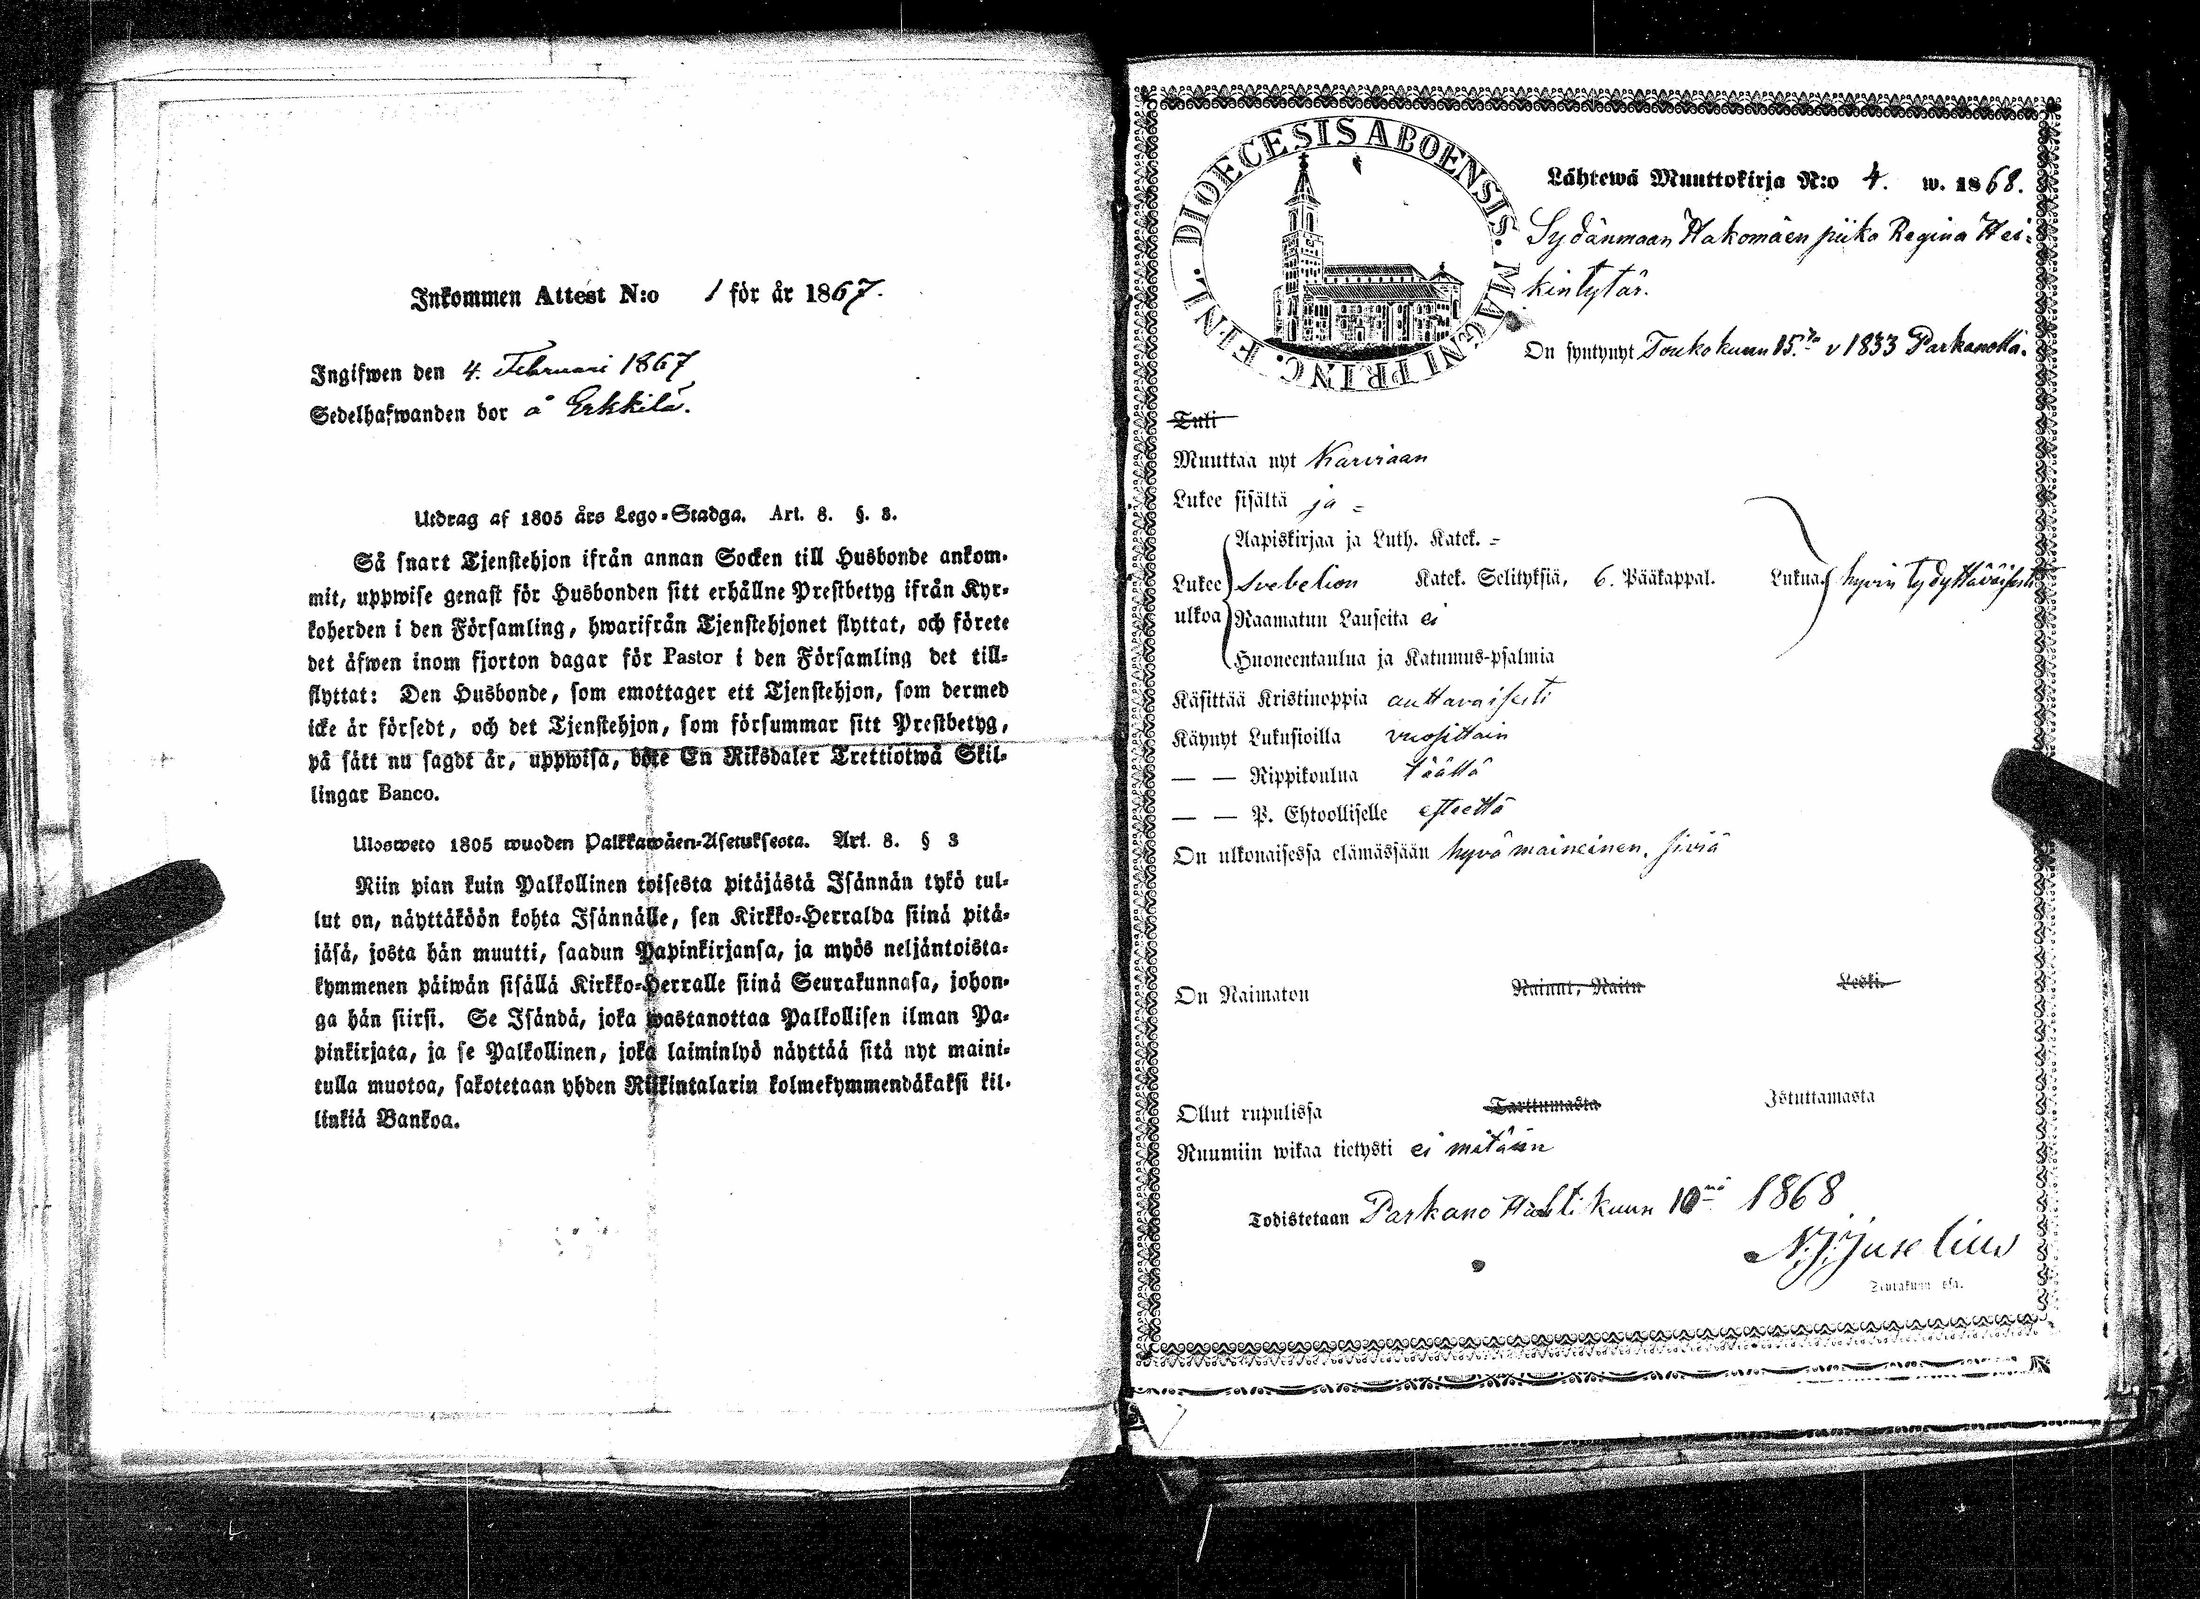 Inkommen Attest N:o 1 för år 1867.
Ingifwen den 4. Februari 1867
Sedelhafwanden bor å Erkkilä.
Utdrag af 1805 års Lego-Stadga. Art. 8. §. 3.
Så snart Tjenstehjon ifrån annan Socken till Husbonde ankom-
mit, uppwise genast för Husbonden sitt erhållne Prestbetyg ifrån Kyr-
koherden i den Församling, hwarifrån Tjenstehjonet flyttat, och förete
det äfwen inom fjorton dagar för Pastor i den Församling det till-
flyttat: Den Husbonde, som emottager ett Tjenstehjon, som dermed
icke är försedt, och det Tjenstehjon, som försummar sitt Prestbetyg,
på sätt nu sagdt är, uppwisa, böte En Riksdaler Trettiotwå Skil-
lingar Banco.
Ulosweto 1805 wuoden Palkkawäen-Asetuksesta. Art. 8. § 3
Niin pian kuin Palkollinen toisesta pitäjästä Isännän tykö tul-
lut on, näyttäköön kohta Isännälle, sen Kirkko-Herralda siinä pitä-
jäsä, josta hän muutti, saadun Papinkirjansa, ja myös neljäntoista-
kymmenen päiwän sisällä Kirkko-Herralle siinä Seurakunnasa, johon-
ga hän siirsi. Se Isändä, joka wastanottaa Palkollisen ilman Pa-
pinkirjata, ja se Palkollinen, joka laiminlyö näyttää sitä nyt maini-
tulla muotoa, sakotetaan yhden Riikintalarin kolmekymmendäkaksi kil-
linkiä Bankoa.
DIOECESIS ABOENSIS. MAGNI PRINC. FINL.
Lähtewä Muuttokirja N:o 4. w. 1868.
Sydänmaan Hakomäen piika Regina Hei-
kintytär.
On syntynyt Toukokuun 15. v 1833 Parkanolla.
Tuli
Muuttaa nyt Karviaan
Lukee sisältä ja =
Aapiskirjaa ja Luth. Katek. =
Lukee ulkoa Svebelion Katek. Selityksiä, 6. Pääkappal. Lukuaf hyvin tydyttäväisesti
Raamatun Lauseita ei
Huoneentaulua ja Katumus-psalmia
Käsittää Kristinoppia auttavaisesti
Käynyt Lukusioilla vuosittain
— — Rippikoulua täällä
— — P. Ehtoolliselle esteettä
On ulkonaisessa elämässään hyvä maineinen, siviä
On Naimaton Nainut, Naitu Leski.
Ollut rupulissa Tarttumasta Istuttamasta
Ruumiin wikaa tietysti ei mitään
Todistetaan Parkano Huhtikuun 10 1868
N.J. Juselius